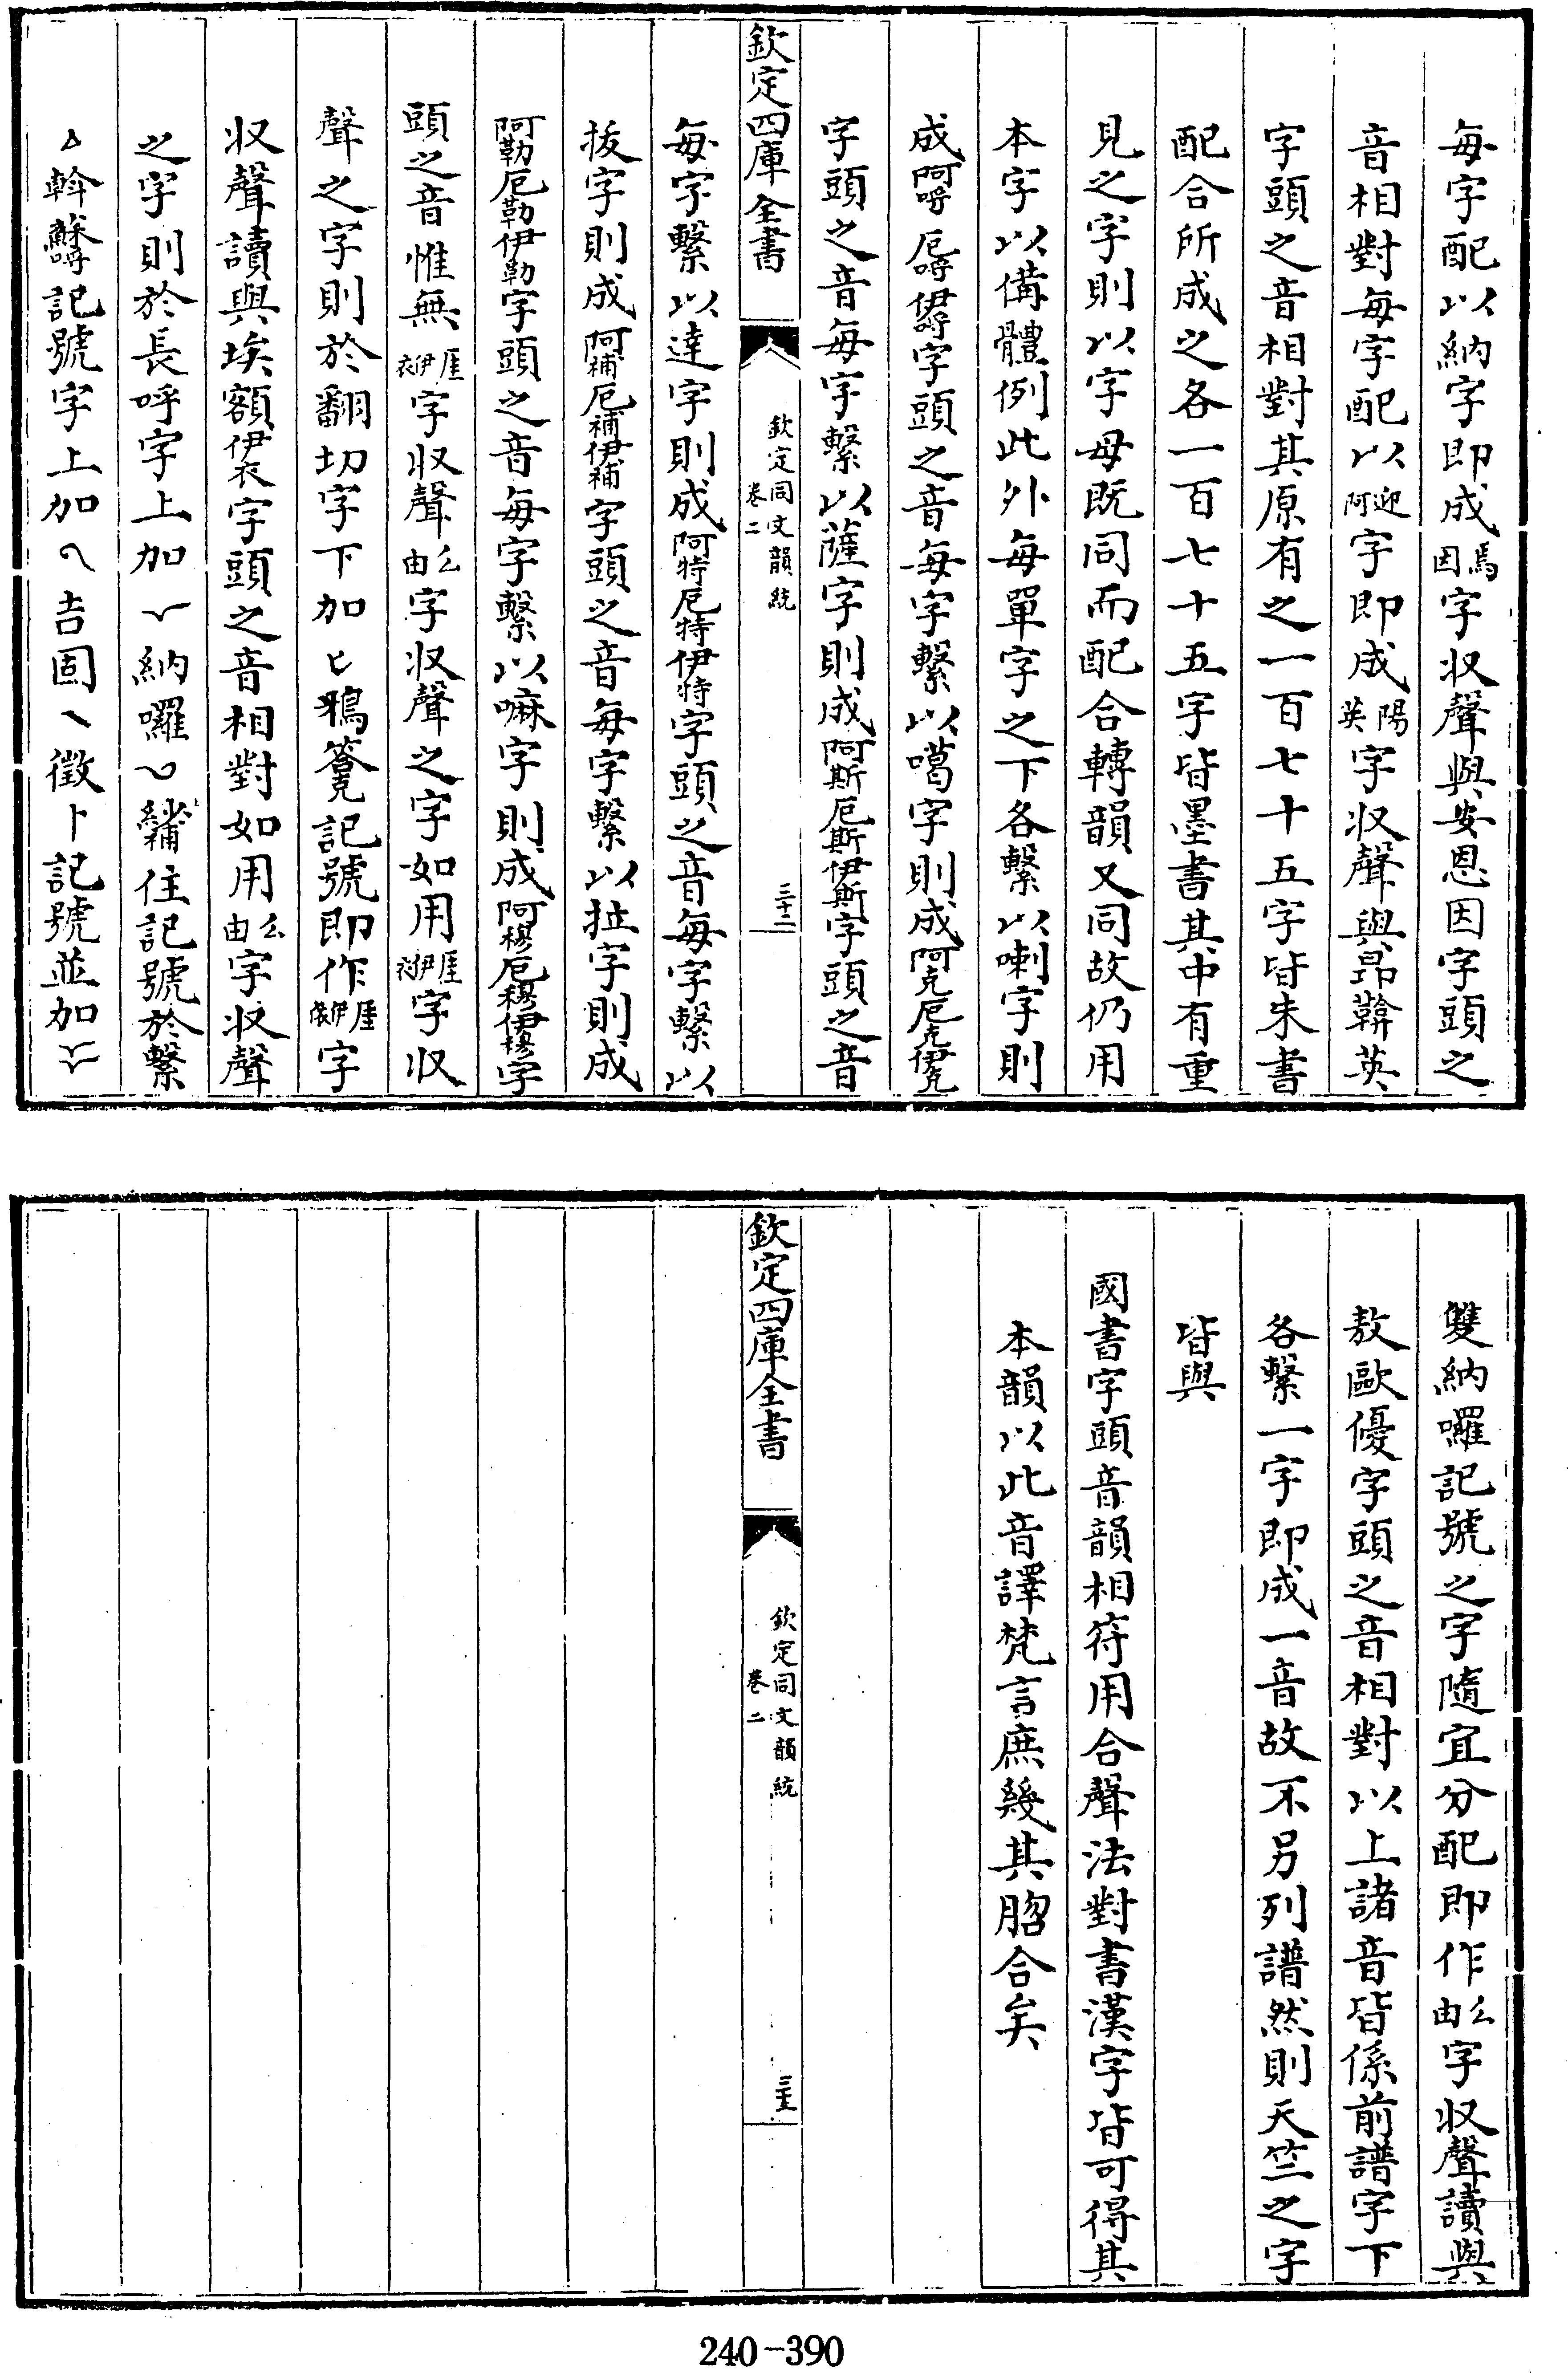 每字配以納字即成焉因字收聲與安恩因字頭之
音相對每字配以迎阿字即成陽英字收聲與昂鞥英
字頭之音相對其原有之一百七十五字皆朱書
配合所成之各一百七十五字皆墨書其中有重
見之字則以字母既同而配合轉韻又同故仍用
本字以備體例此外每單字之下各繫以喇字則
成阿哷厄哷伊哷字頭之音每字繫以噶字則成阿克厄克伊克
字頭之音每字繫以薩字則成阿斯厄斯伊斯字頭之音
欽定四庫全書
欽定同文韻統
卷二
三十二
每字繫以達字則成阿特厄特伊特字頭之音每字繫以
拔字則成阿補厄補伊補字頭之音每字繫以拉字則成
阿勒厄勒伊勒字頭之音每字繫以嘛字則成阿穆厄穆伊穆字
頭之音惟無厓伊衣字收聲幺由字收聲之字如用厓伊衣字收
聲之字則於翻切字下加匕鴉簺記號即作厓伊衣字
收聲讀與埃額伊衣字頭之音相對如用幺由字收聲
之字則於長呼字上加㇀納囉㇃繡住記號於繫
斡蘇哷記號字上加吉固㇏徵⺊記號並加
雙納囉記號之字隨宜分配即作幺由字收聲讀與
敖歐優字頭之音相對以上諸音皆係前譜字下
各繫一字即成一音故不另列譜然則天竺之字
皆與
國書字頭音韻相符用合聲法對書漢字皆可得其
本韻以此音譯梵言庶幾其脗合矣
欽定四庫全書
欽定同文韻統
卷二
三十三
240-390